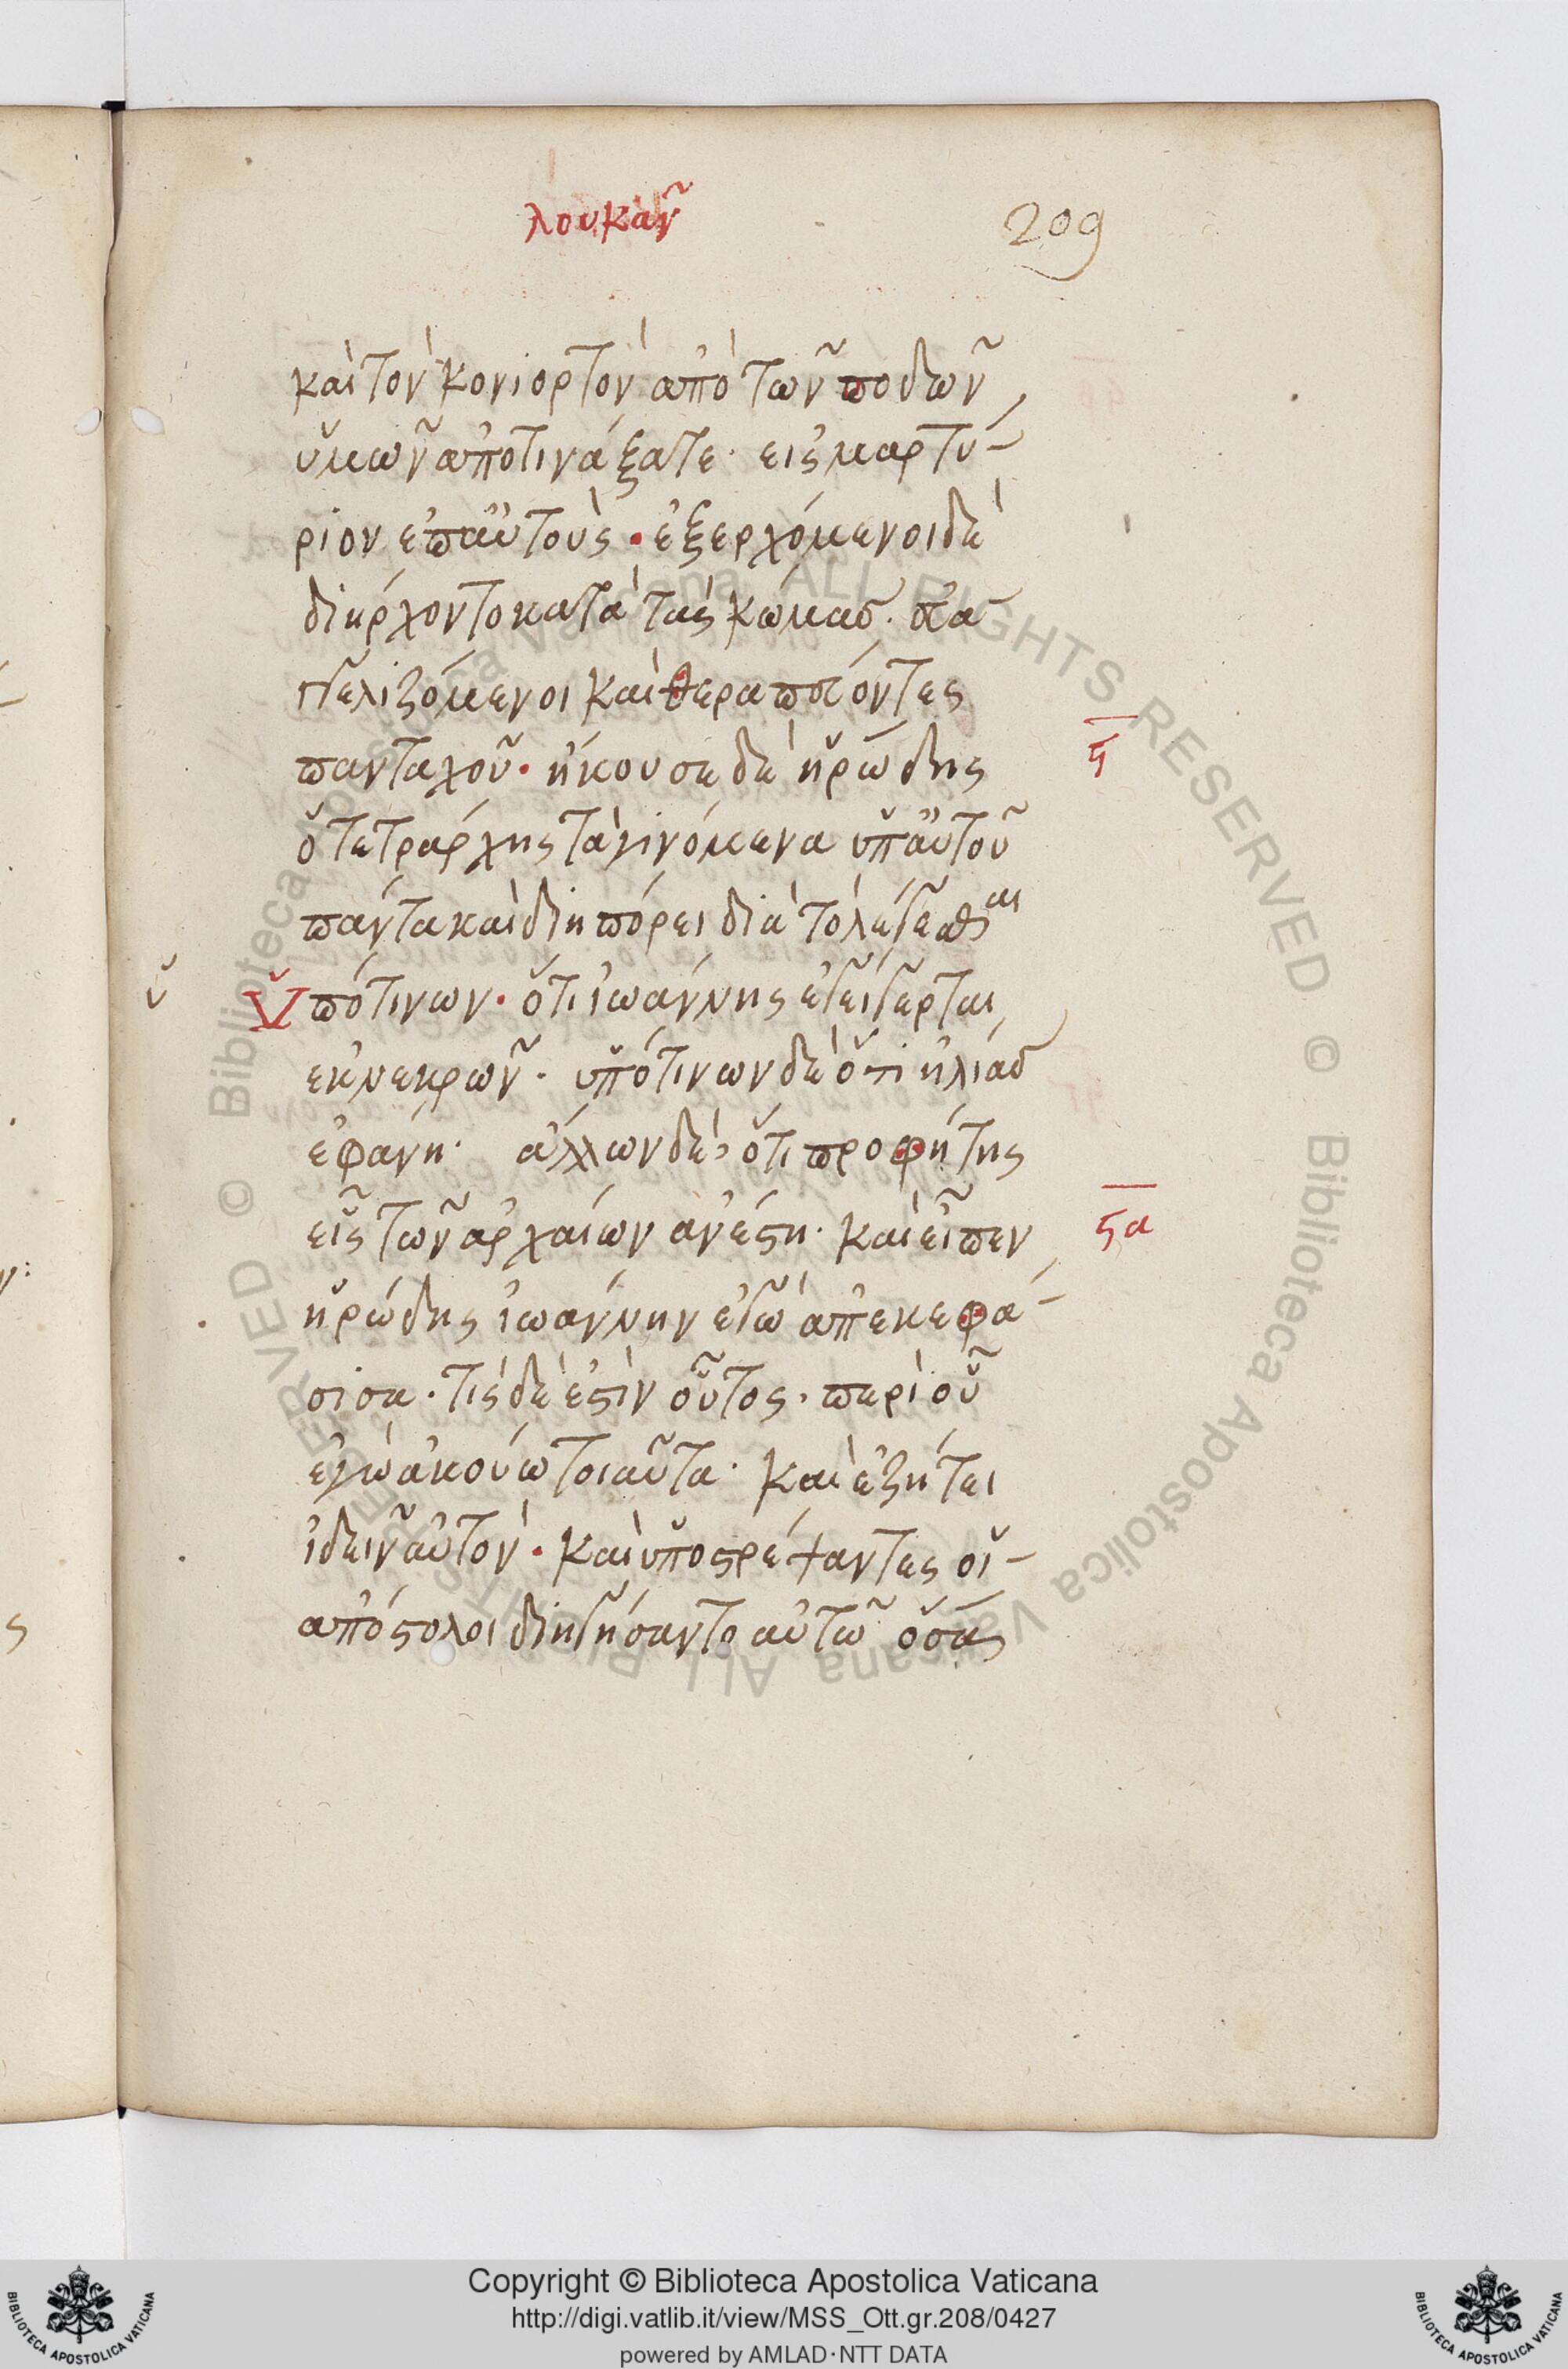 λουκαν͂
209
καὶ τὸν κονιορτὸν ἀπὸ τῶν ποδῶν
ὑμῶν ἀποτινάξατε· εἰς μαρτύ-
ριον ἐπ αὐτούς · ἐξερχόμενοι δὲ
διήρχοντο κατὰ τὰς κώμας· εὐα
γγελιζόμενοι καὶ θεραπεύοντες
πανταχοῦ · ἤκουσε δὲ ἡρώδης
ϟ
ὁ τετράρχης τὰ γινόμενα ὑπ αὐτοῦ
πάντα καὶ διηπόρει διὰ τὸ λέγεσθαι
ὑ
ὑπό τινων · ὅτι ἰωάννης ἐγείγερται
ἐκ νεκρῶν · ὑπό τινων δὲ ὅτι ἠλίας
ἐφάνη · ἄλλων δὲ, ὅτι προφήτης
εἷς τῶν ἀρχαίων ἀνέστη · καὶ εἶπεν
ϟα
ἡρώδης ἰωάννην ἐγὼ ἀπεκεφά-
σισα · τίς δέ ἐστὶν οὗτος · περὶ οὗ
ἐγὼ ἀκούω τοιαῦτα · καὶ ἐζήτει
ἰδεῖν αὐτόν · καὶ ὑποστρέψαντες οἱ-
ἀπόστολοι διηγήσαντο αὐτῷ ὅσα
Copyright © Biblioteca Apostolica Vaticana
http://digi.vatlib.it/view/MSS_Ott.gr.208/0427
powered by AMLAD·NTT DATA
BIBLIOTECA APOSTOLICA VATICANA
BIBLIOTECA APOSTOLICA VATICANA
© Biblioteca Apostolica Vaticana ALL RIGHTS RESERVED © Biblioteca Apostolica Vaticana ALL RIGHTS RESERVED